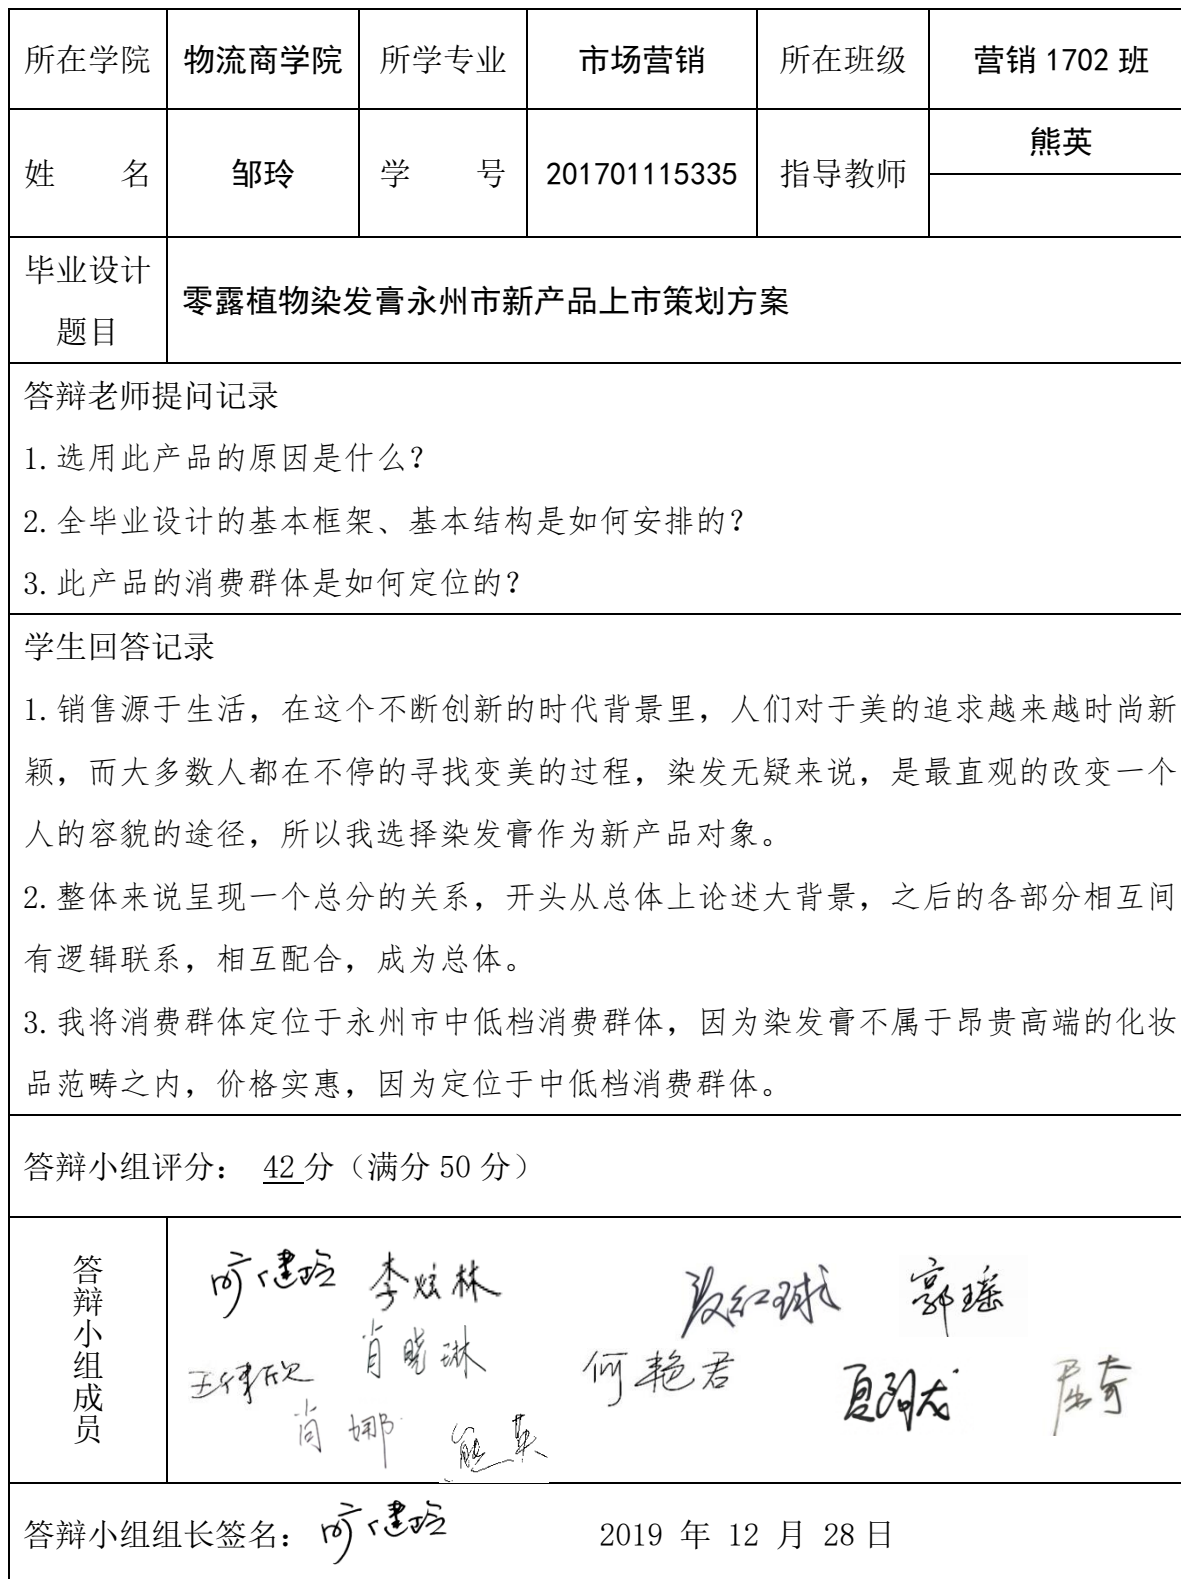 所在学院 物流商学院 所学专业 市场营销 所在班级 营销 1702 班
姓 名 邹玲 学 号 201701115335 指导教师 熊英
毕业设计
题目
零露植物染发膏永州市新产品上市策划方案
答辩老师提问记录
1.选用此产品的原因是什么？
2.全毕业设计的基本框架、基本结构是如何安排的？
3.此产品的消费群体是如何定位的？
学生回答记录
1.销售源于生活，在这个不断创新的时代背景里，人们对于美的追求越来越时尚新
颖，而大多数人都在不停的寻找变美的过程，染发无疑来说，是最直观的改变一个
人的容貌的途径，所以我选择染发膏作为新产品对象。
2.整体来说呈现一个总分的关系，开头从总体上论述大背景，之后的各部分相互间
有逻辑联系，相互配合，成为总体。
3.我将消费群体定位于永州市中低档消费群体，因为染发膏不属于昂贵高端的化妆
品范畴之内，价格实惠，因为定位于中低档消费群体。
答辩小组评分： 42 分（满分 50 分）
答辩小组成员
李炫林 郭瑶
肖晓琳 何艳君
肖娜 熊英
答辩小组组长签名： 2019 年 12 月 28 日